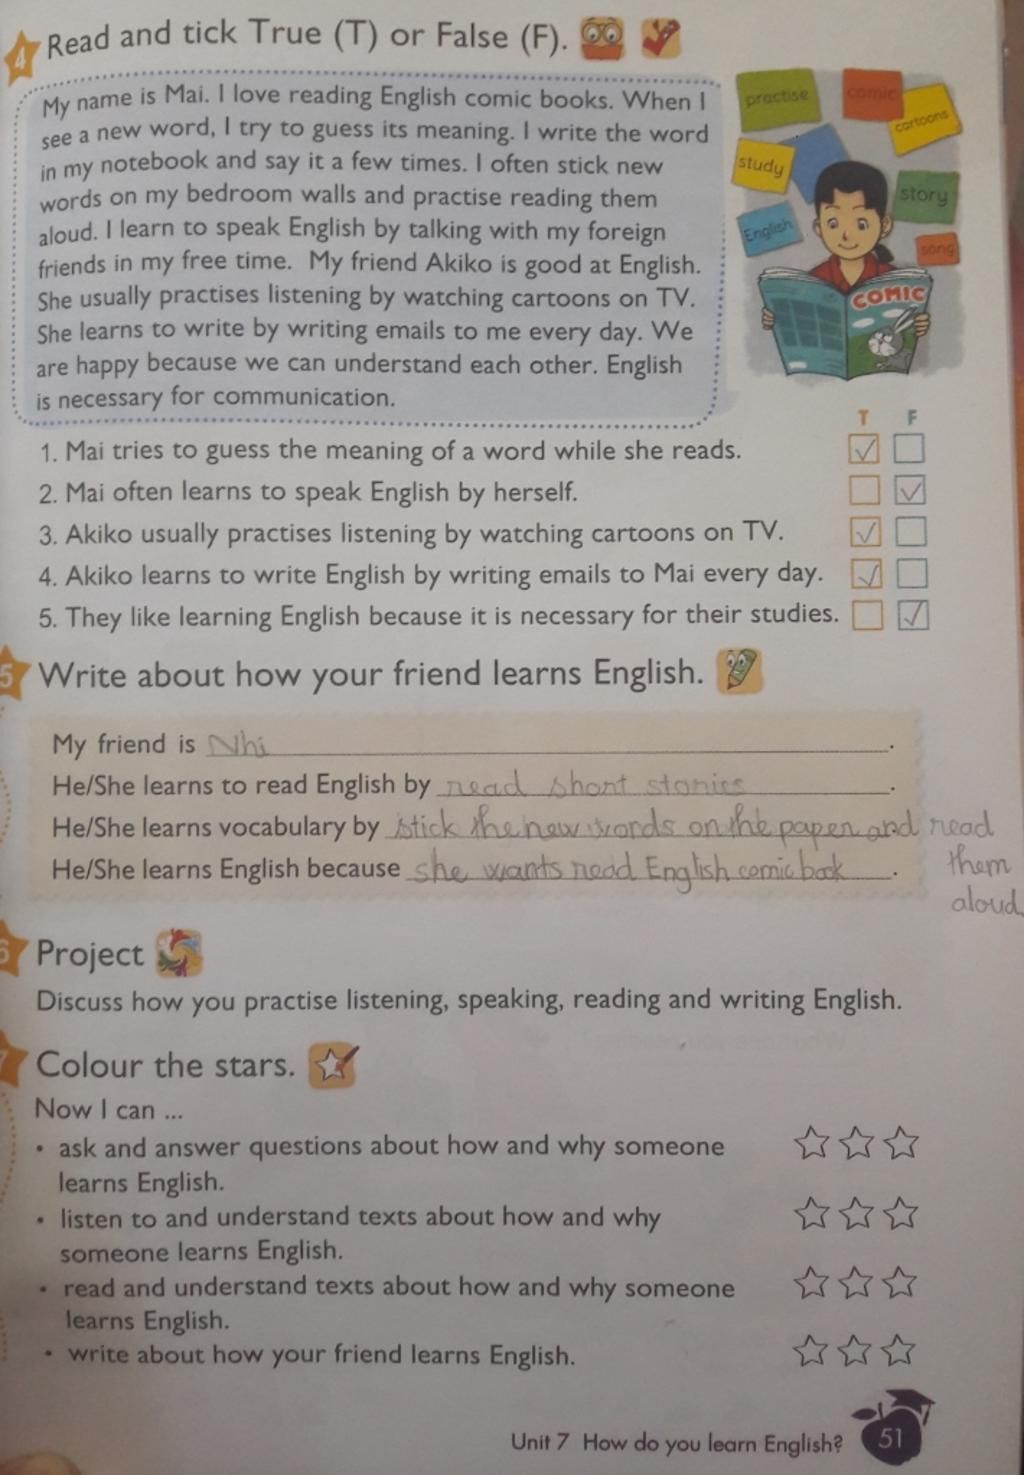 4 Read and tick True (T) or False (F).
My name is Mai. I love reading English comic books. When I
see a new word, I try to guess its meaning. I write the word
in my notebook and say it a few times. I often stick new
words on my bedroom walls and practise reading them
aloud. I learn to speak English by talking with my foreign
friends in my free time. My friend Akiko is good at English.
She usually practises listening by watching cartoons on TV.
She learns to write by writing emails to me every day. We
are happy because we can understand each other. English
is necessary for communication.
practise
comic
cartoons
study
story
English
song
COMIC
T F
1. Mai tries to guess the meaning of a word while she reads.
2. Mai often learns to speak English by herself.
3. Akiko usually practises listening by watching cartoons on TV.
4. Akiko learns to write English by writing emails to Mai every day.
5. They like learning English because it is necessary for their studies.
5 Write about how your friend learns English.
My friend is Nhi.
He/She learns to read English by read short stories.
He/She learns vocabulary by stick the new words on the paper and read
them
aloud
He/She learns English because she wants read English comic book.
6 Project
Discuss how you practise listening, speaking, reading and writing English.
7 Colour the stars.
Now I can ...
• ask and answer questions about how and why someone
learns English.
• listen to and understand texts about how and why
someone learns English.
• read and understand texts about how and why someone
learns English.
• write about how your friend learns English.
Unit 7 How do you learn English? 51